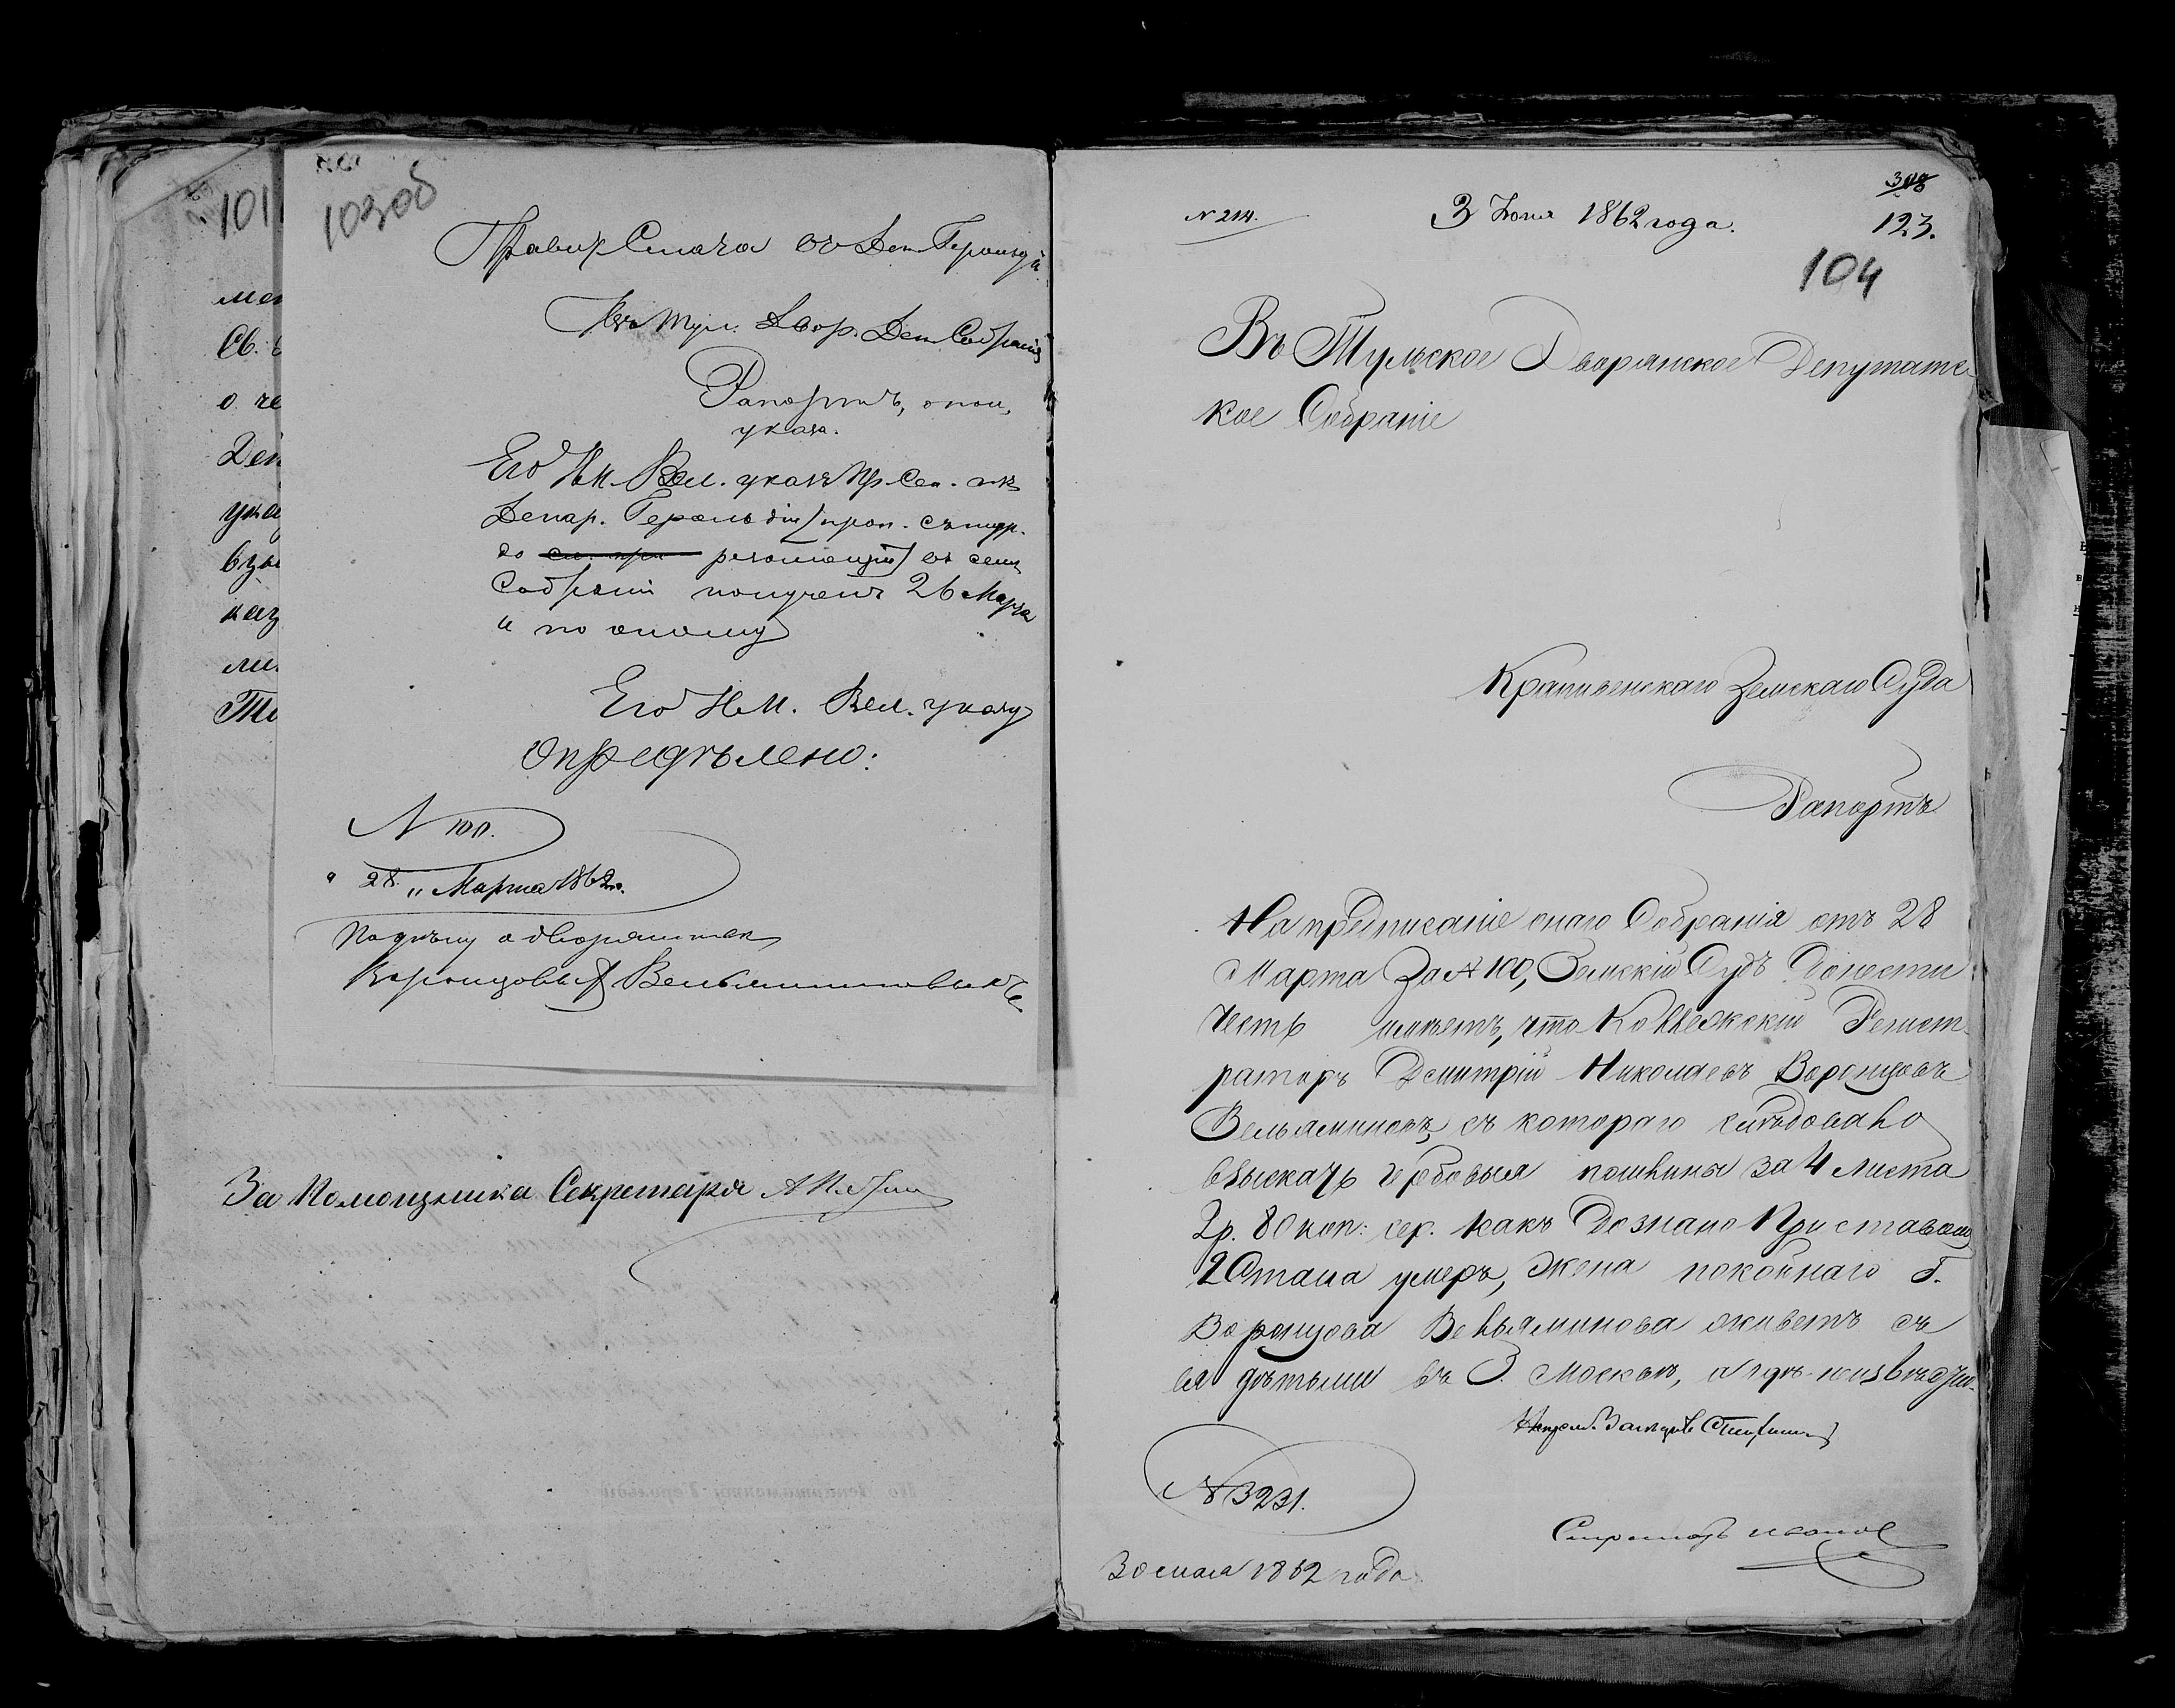 101
103об
Правит. Сената въ Деп. Герольдіи
Изъ Тул. Двор. Деп. Собранія
Рапортъ, о пол.
указа.
Его Им. Вел. указъ Пр. Сен. изъ
Депар. Герольдіи
до резолюціи) въ семъ
Собраніи полученъ 26 Марта
и по оному
Его Им. Вел. указу
Опредѣлено:
N 100.
" 28 " Марта 1862 г.
По дѣлу о дворянствѣ
Воронцовыхъ Вельяминовыхъ
мен
Св.
о че
Деп
ука
взы
каз
ли
Ту
За Помощника Секретаря
308
N 214. 3 Іюня 1862 года. 123.
104
Въ Тульское Дворянское Депутатс-
кое Собраніе
Крапивенскаго Земскаго Суда
Рапортъ
На предписаніе онаго Собранія отъ 28
Марта За N 100, Земскій Судъ донести
честь имѣетъ, что Коллежскій Регист-
раторъ Дмитрій Николаевъ Воронцовъ
Вельяминовъ, съ котораго слѣдовало
взыскать гербовыя пошлины за 4 листа
2 р. 80 коп: сер. какъ дознано Приставомъ
2 Стана умеръ, жена покойнаго Г.
Воронцова Вельяминова живетъ съ
ея дѣтьми въ Г. Москвѣ, а гдѣ неизвѣстно.
N 3231.
Секретарь Ивановъ
30 мая 1862 года